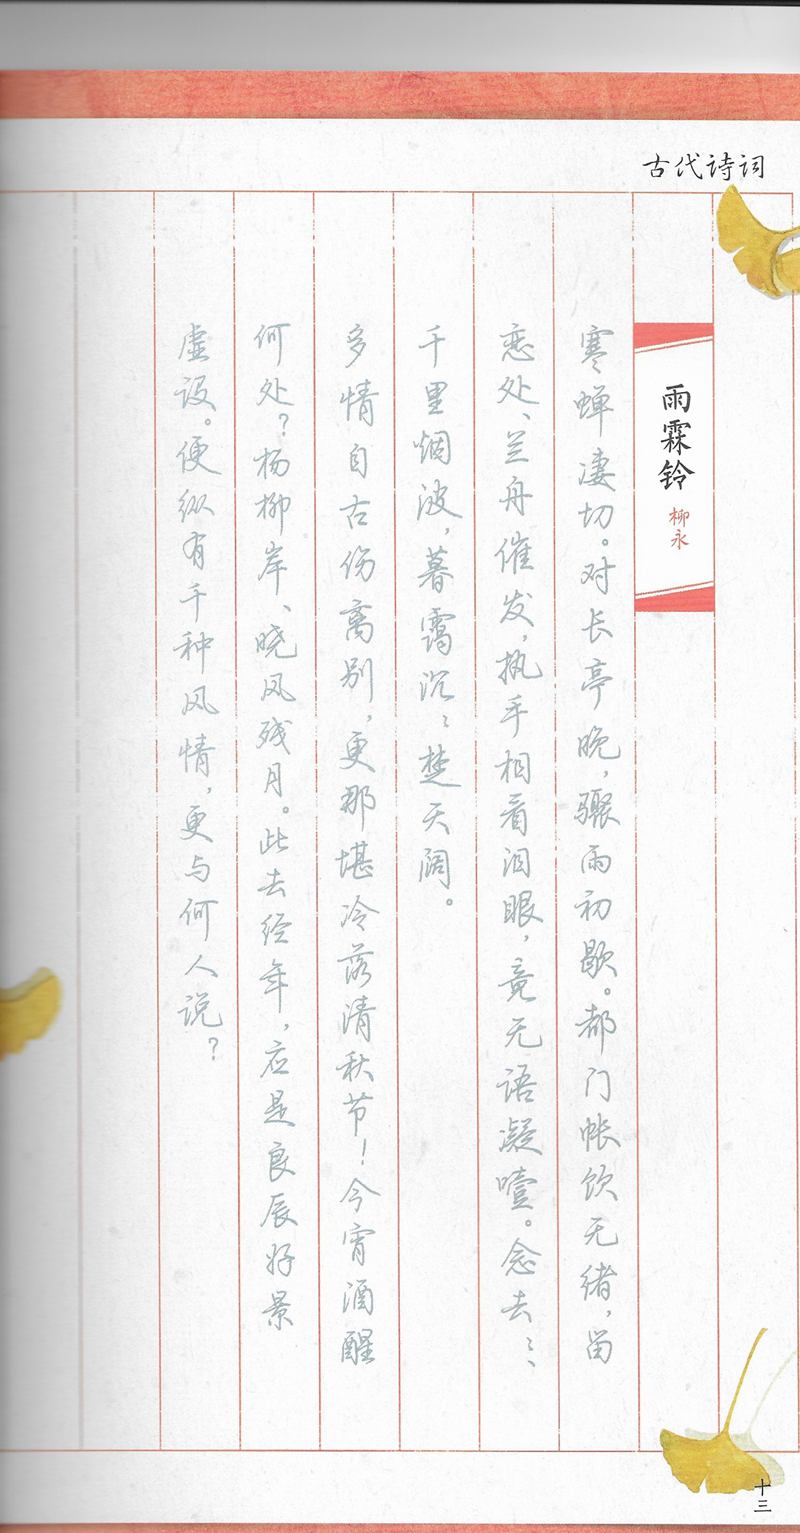 古代诗词
雨霖铃
柳永
寒蝉凄切。对长亭晚，骤雨初歇。都门帐饮无绪，留
恋处、兰舟催发，执手相看泪眼，竟无语凝噎。念去〻、
千里烟波，暮霭沉〻楚天阔。
多情自古伤离别，更那堪冷落清秋节！今宵酒醒
何处？杨柳岸、晓风残月。此去经年，应是良辰好景
虚设。便纵有千种风情，更与何人说？
十三